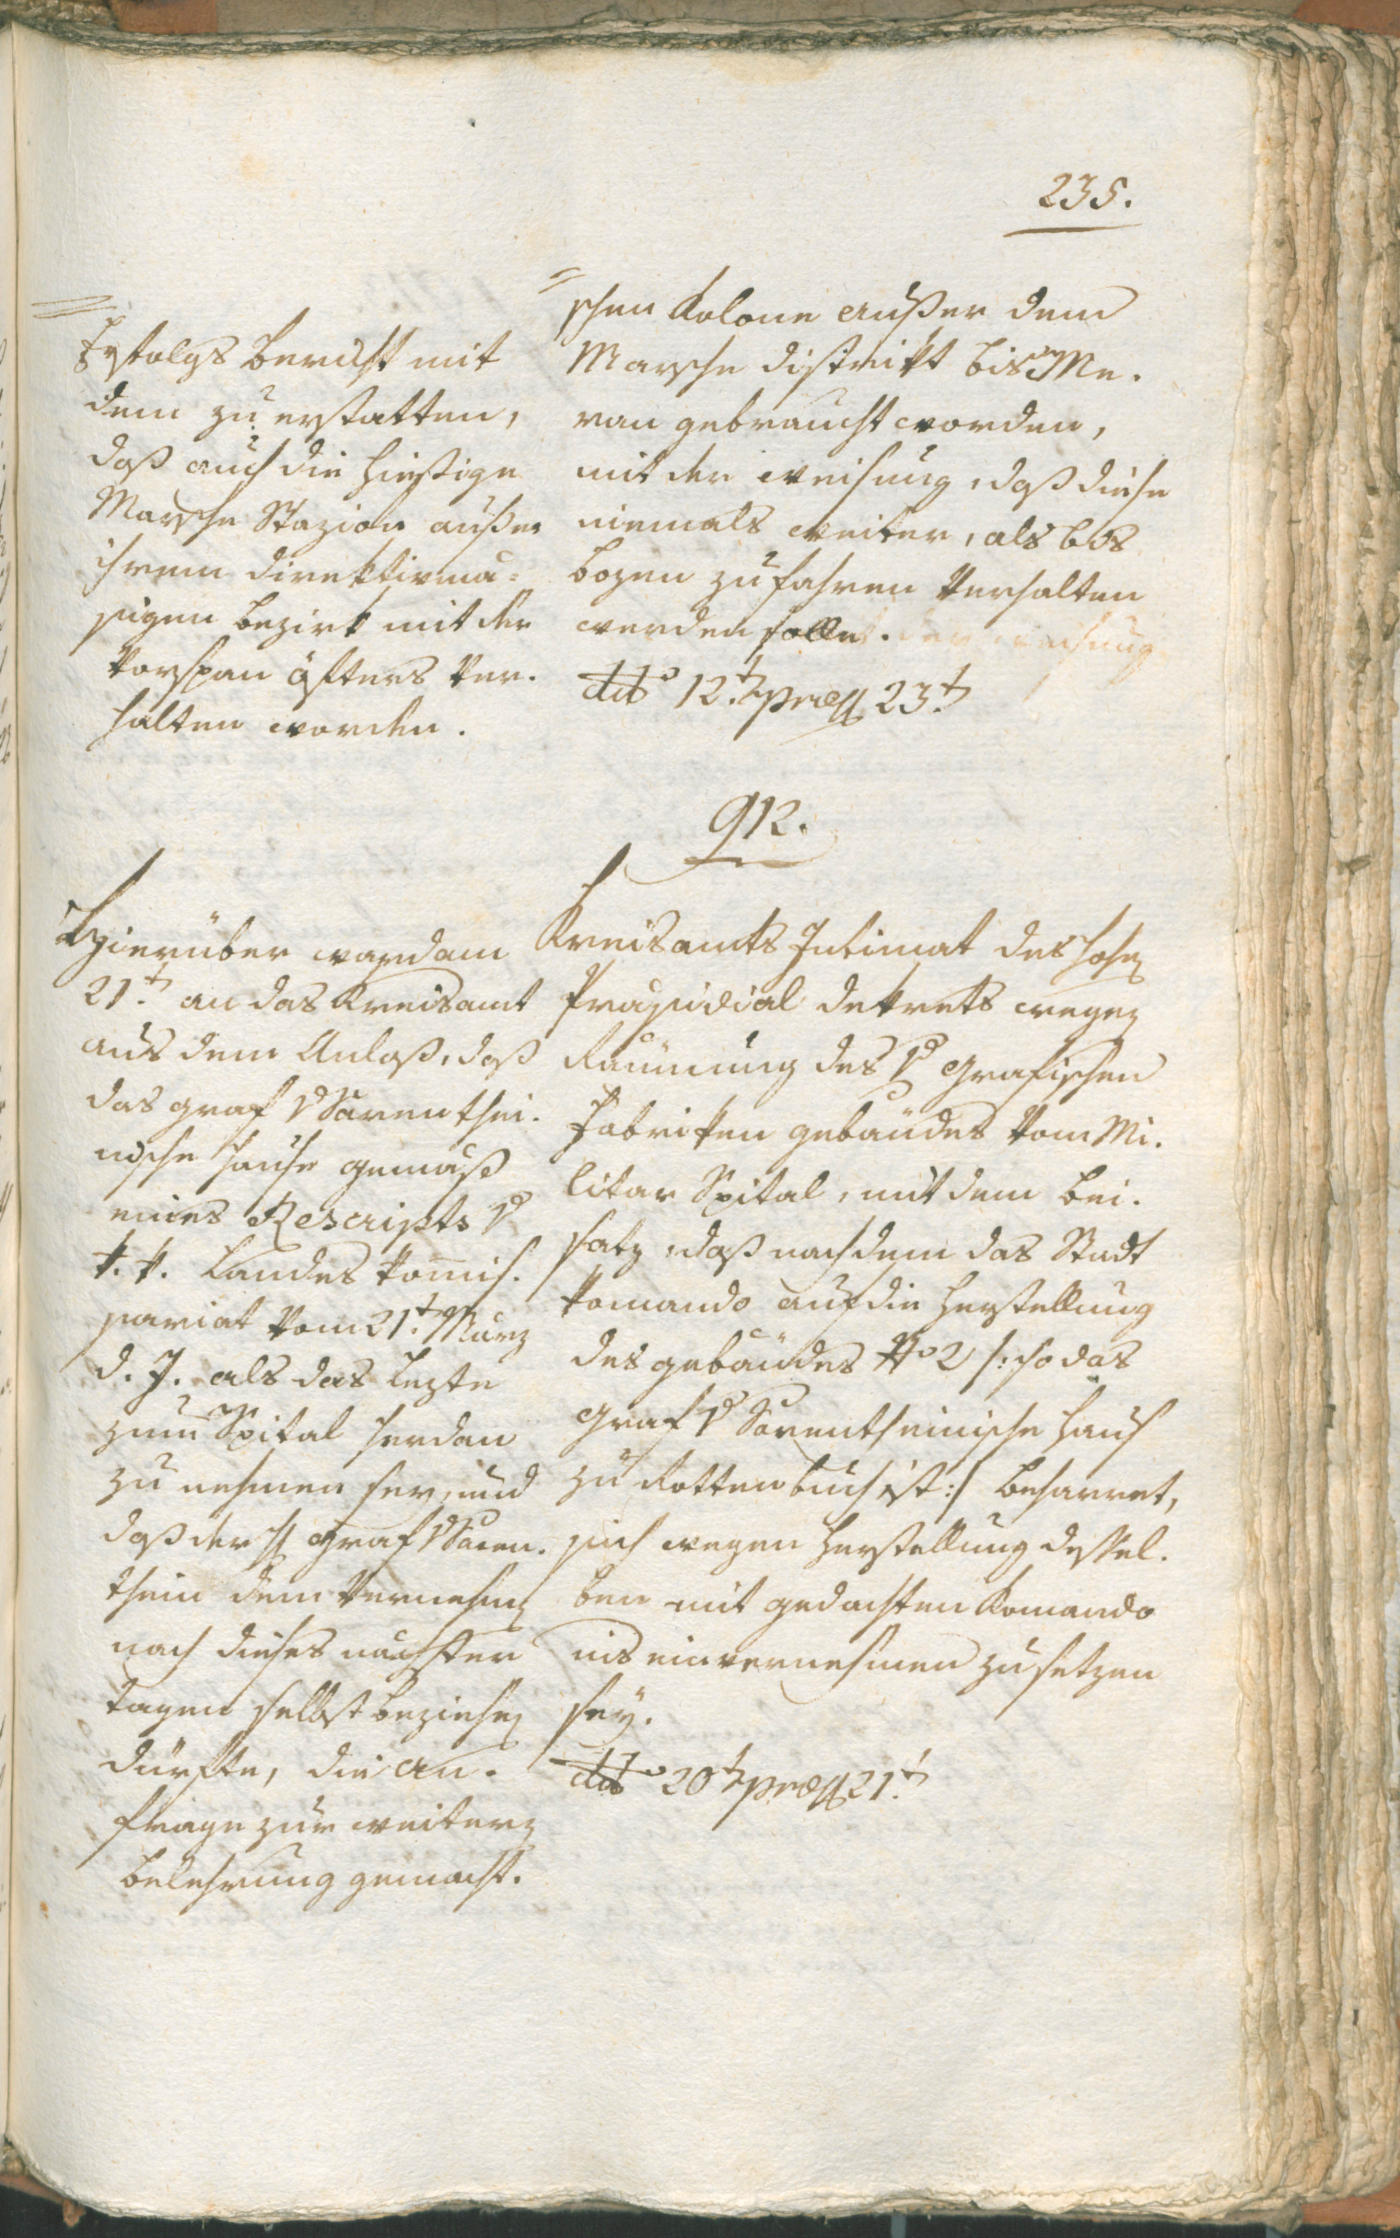 235.
Erfolgs Bericht mit
dem zu erstatten,
daß auch die hiesige
Marsche Stazion außer
ihrem direktivmä-
sigen Bezirk mit der
Vorspan öfters ver-
halten worden.
schen Kolone außer dem
Marsche distrikt bis Me-
ran gebraucht worden,
mit der Weisung, daß diese
niemals weiter, als bis
Bozen zufahren verhalten
werden solle.
ddto 12.t præs 23.t
912.
Hierüber ward am
21.t an das Kreisamt
aus dem Anlaß, daß
das Graf v Sarenthei-
nische Hause gemäß
eines Rescripts v
k. k. Landes komis-
sariat vom 21.t März
d. J. als das lezte
zum Spital herdan
zu nehmen sey, und
daß der H Graf v Saren-
thein dem Vernehmen
nach dieses nächster
tagen selbst beziehen
dürfte, die An-
frage zur weitern
Belehrung gemacht.
Kreisamts Intimat des hohen
Præsidial dekrets wegen
Raümung des v Grafischen
Fabriken gebäudes vom Mi-
litar Spital, mit dem Bei-
satz, daß nachdem das Stadt
Komando auf die Herstellung
des gebäudes No 2 /: so das
Graf v Sarentheinische Haus
zu Rottenbuch ist :/ beharret,
sich wegen Herstellung dessel-
ben mit gedachten Komando
ins einvernehmen zu setzen
sey.
ddto 20t præs 21.t